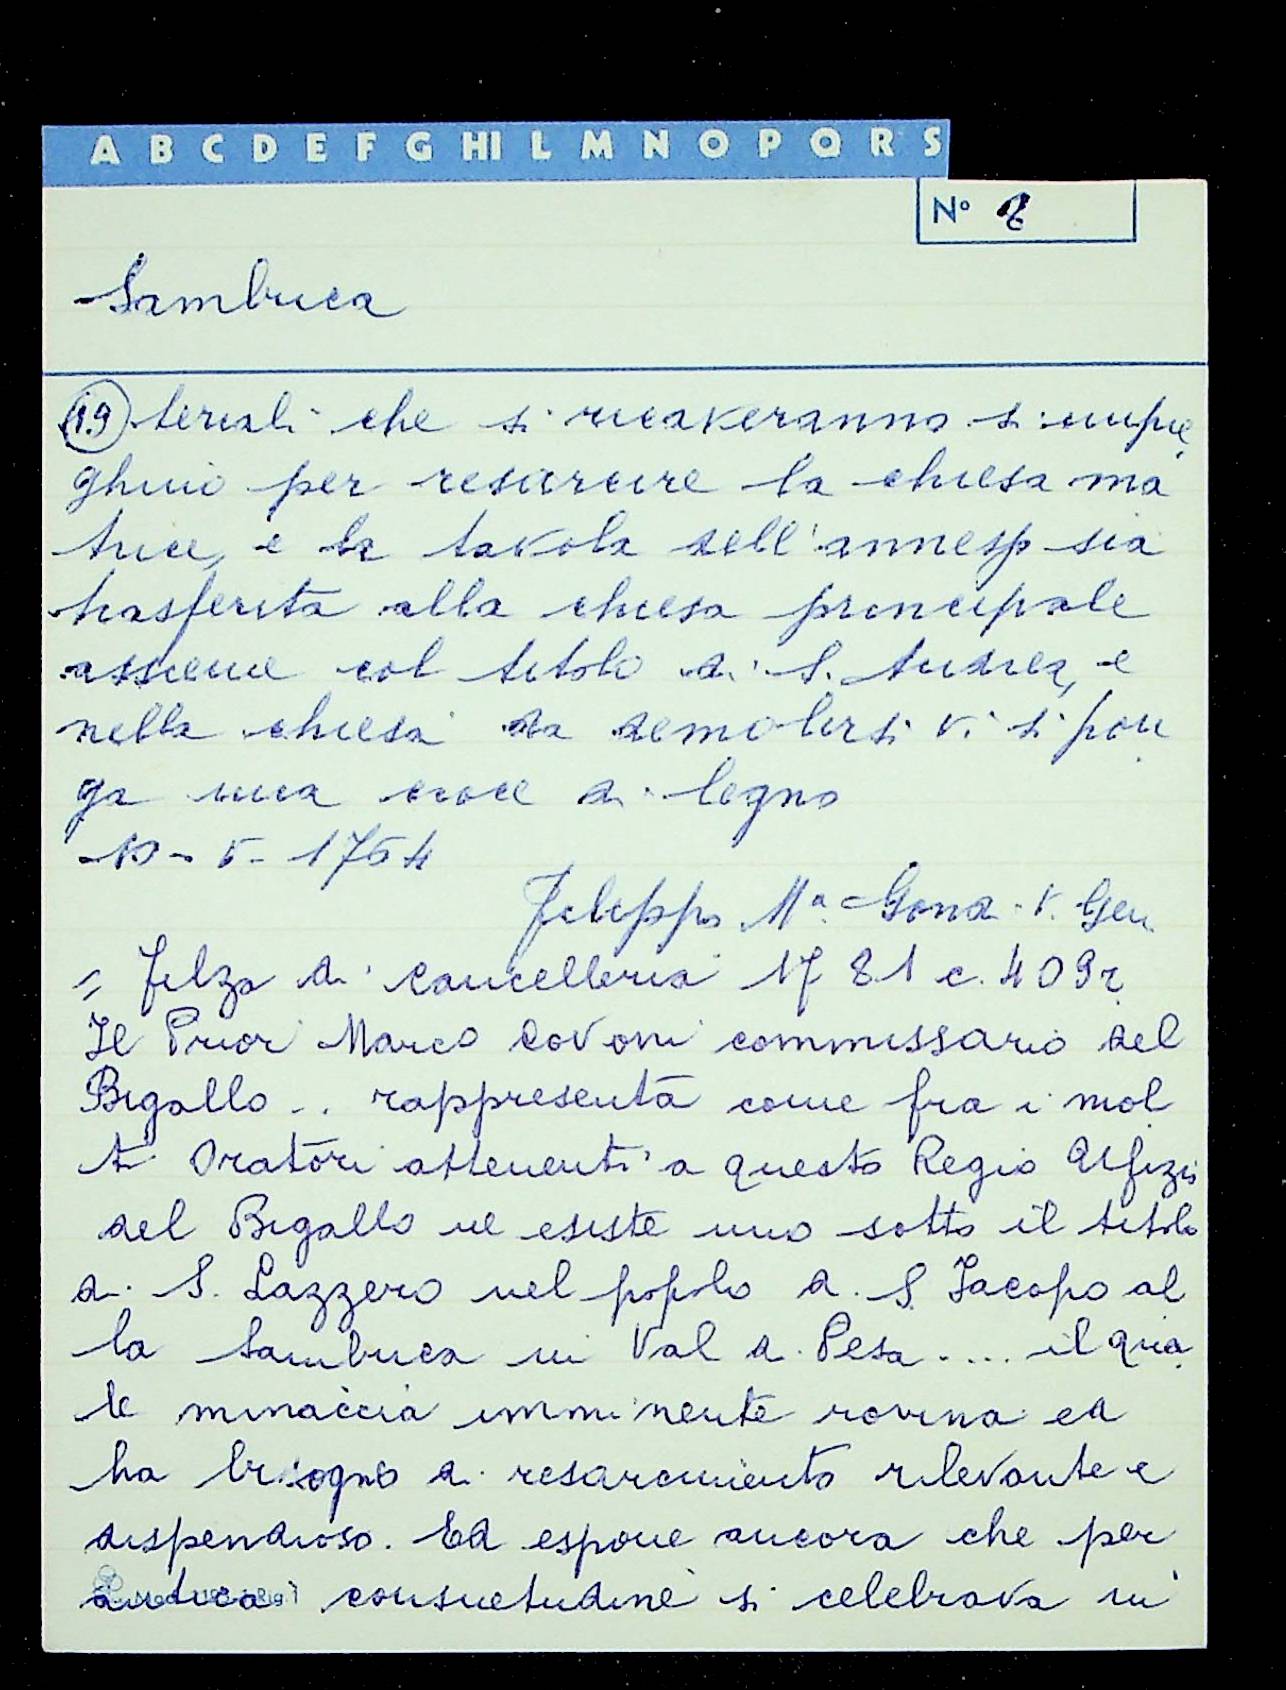 A B C D E F G HI L M N O P Q R S
N° 8
Sambuca
19 teriali che si ricaveranno si impie
ghino per resarcire la chiesa ma
trice, e la tavola dell'annesso sia
trasferita alla chiesa principale
assieme col titolo di S. Andrea, e
nella chiesa da demolirsi vi si pon
ga una croce di legno
10 - V - 1764
Filippo Mª Gondi V. Gen
= filza di cancelleria 1781 c. 409r
Il Prior Marco Covoni commissario del
Bigallo .. rappresenta come fra i mol
ti Oratori attenenti a questo Regio Ufizio
del Bigallo ne esiste uno sotto il titolo
di S. Lazzero nel popolo di S. Jacopo al
la Sambuca in Val di Pesa .... il qua
le minaccia imminente rovina ed
ha bisogno di resarcimento rilevante e
dispendioso. Ed espone ancora che per
antica consuetudine si celebrava in